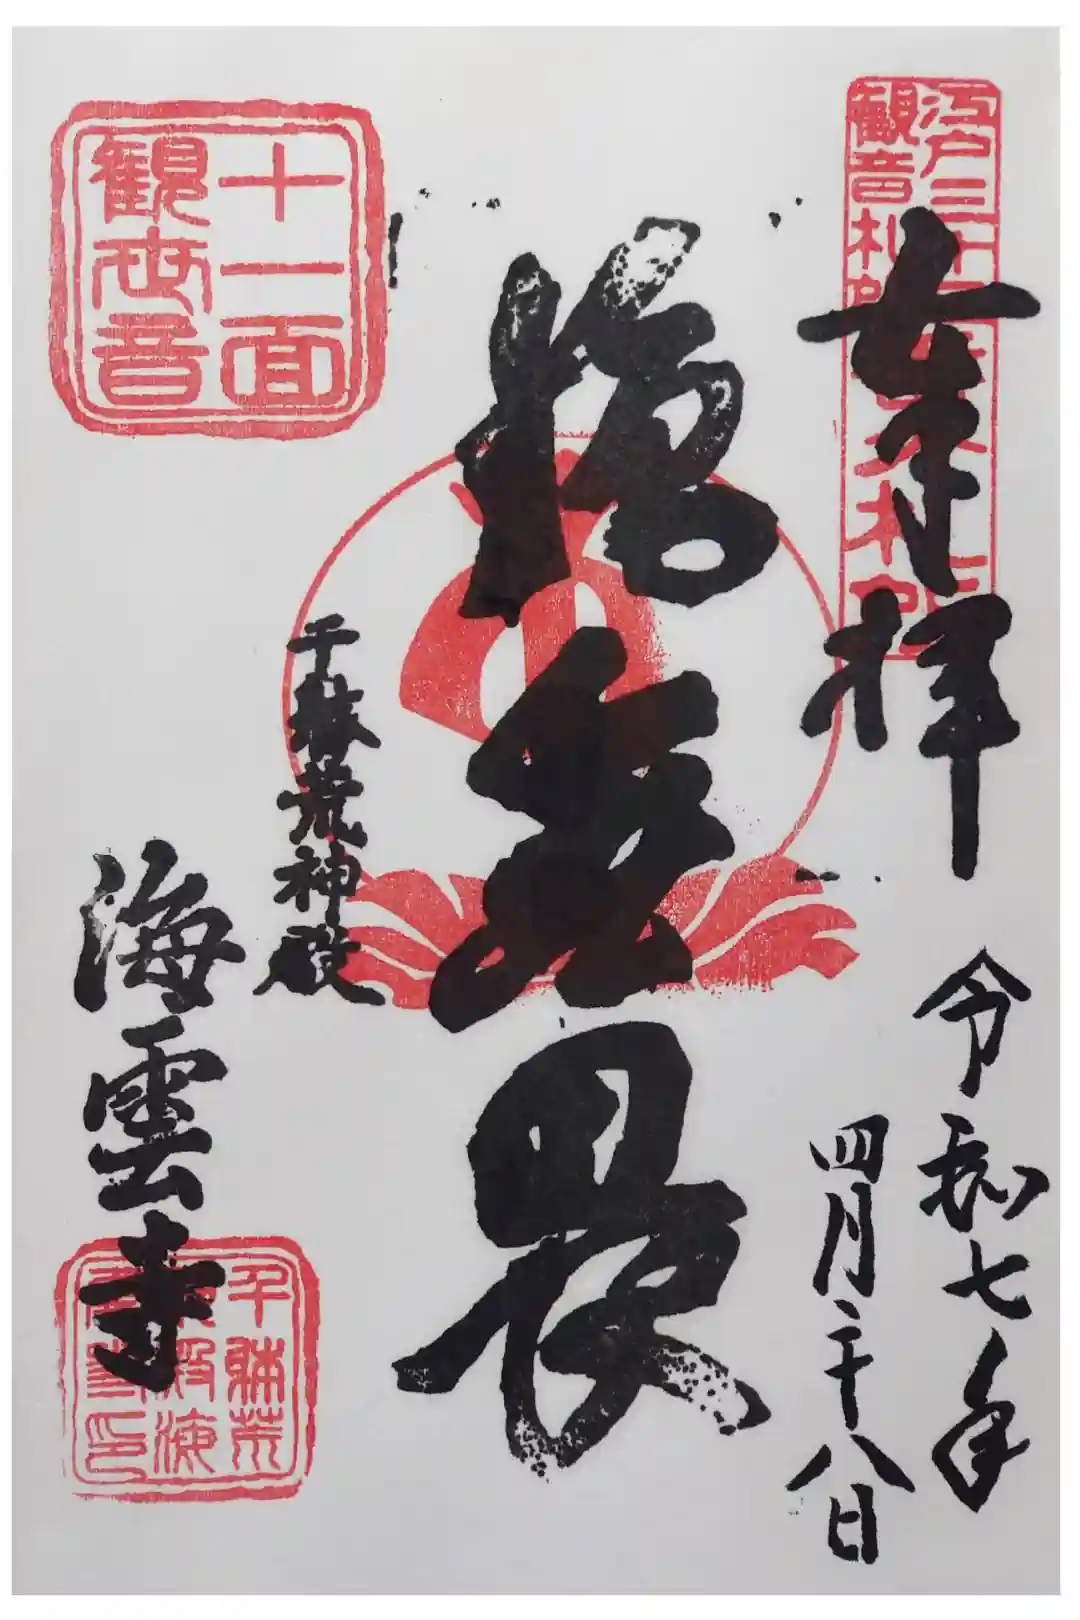 江戸三十
観音札
奉拝
令和七年
四月二十八日
施無畏
千躰荒神殿
海雲寺
十一面
観世音
千躰荒
神殿海
雲寺印